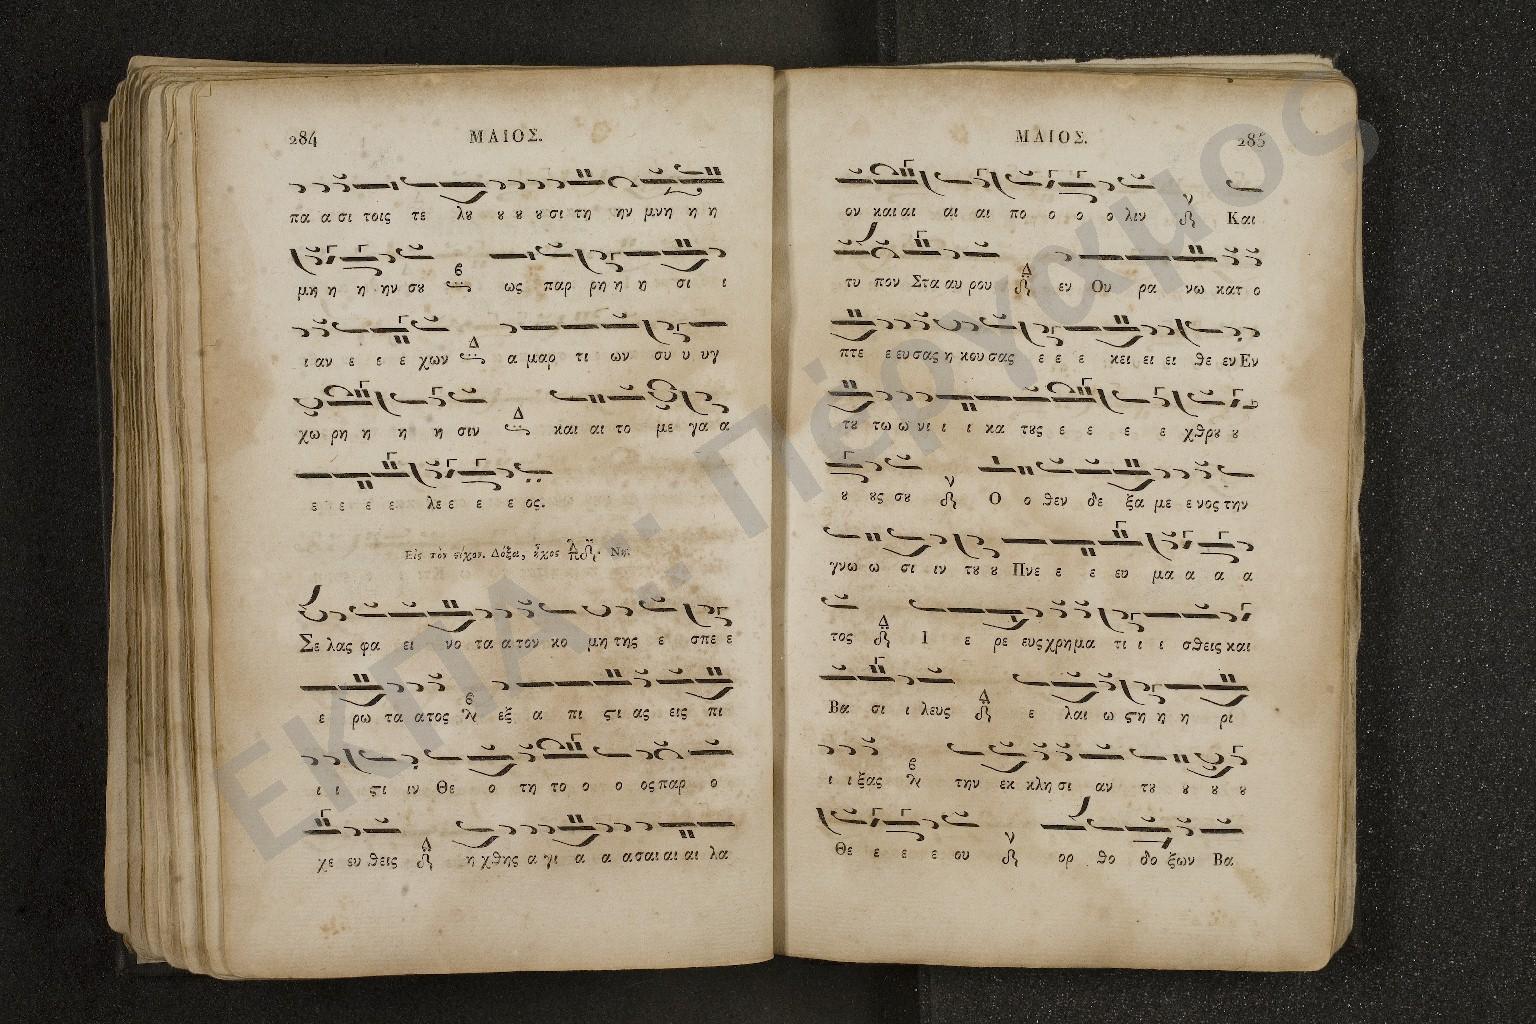 284 ΜΑΙΟΣ.
πα α σι τοις τε λȣ ȣ ȣ ȣ σι τη ην μνη η η
μη η η ην σȣ ως παρ ρη η η σι ι
ι αν ε ε ε χων α μαρ τι ων συ υ υγ
χω ρη η η η σιν και αι το με γα α
ε ε ε ε λε ε ε ε ος.
Εἰς τὸν στίχον. Δόξα, ἦχος Νη.
Σε λας φα ει νο τα α τον κο μη της ε σπε ε
ε ρω τα α τος εξ α πι ϛι ας εις πι
ι ι ϛι ιν Θε ο τη το ο ο ος παρ ο
χε ευ θεις η χθης α γι α α α σαι αι αι λα
ΜΑΙΟΣ. 285
ον και αι αι αι πο ο ο ο λιν Και
τυ πον Στα αυ ρου εν Ου ρα νω κατ ο
πτε ε ευ σας η κου σας ε ε ε κει ει ει θε εν Εν
τȣ τω ω νι ι ι κα τȣς ε ε ε ε χθρȣ ȣ
ȣ ȣς σȣ Ο ο θεν δε ξα με ε νος την
γνω ω σι ιν τȣ ȣ Πνε ε ε ευ μα α α α
τος Ι ε ρε ευς χρημα τι ι ι σθεις και
Βα σι ι λευς ε λαι ω ϛη η η ρι
ι ι ξας την εκ κλη σι αν τȣ ȣ ȣ ȣ
Θε ε ε ε ου ορ θο δο ξων Βα
ΕΚΠΑ :: Πέργαμος